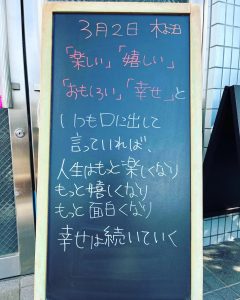 3月2日 木よう日
「楽しい」「嬉しい」
「おもしろい」「幸せ」と
いつも口に出して
言っていれば、
人生はもっと楽しくなり
もっと嬉しくなり
もっと面白くなり
幸せは続いていく